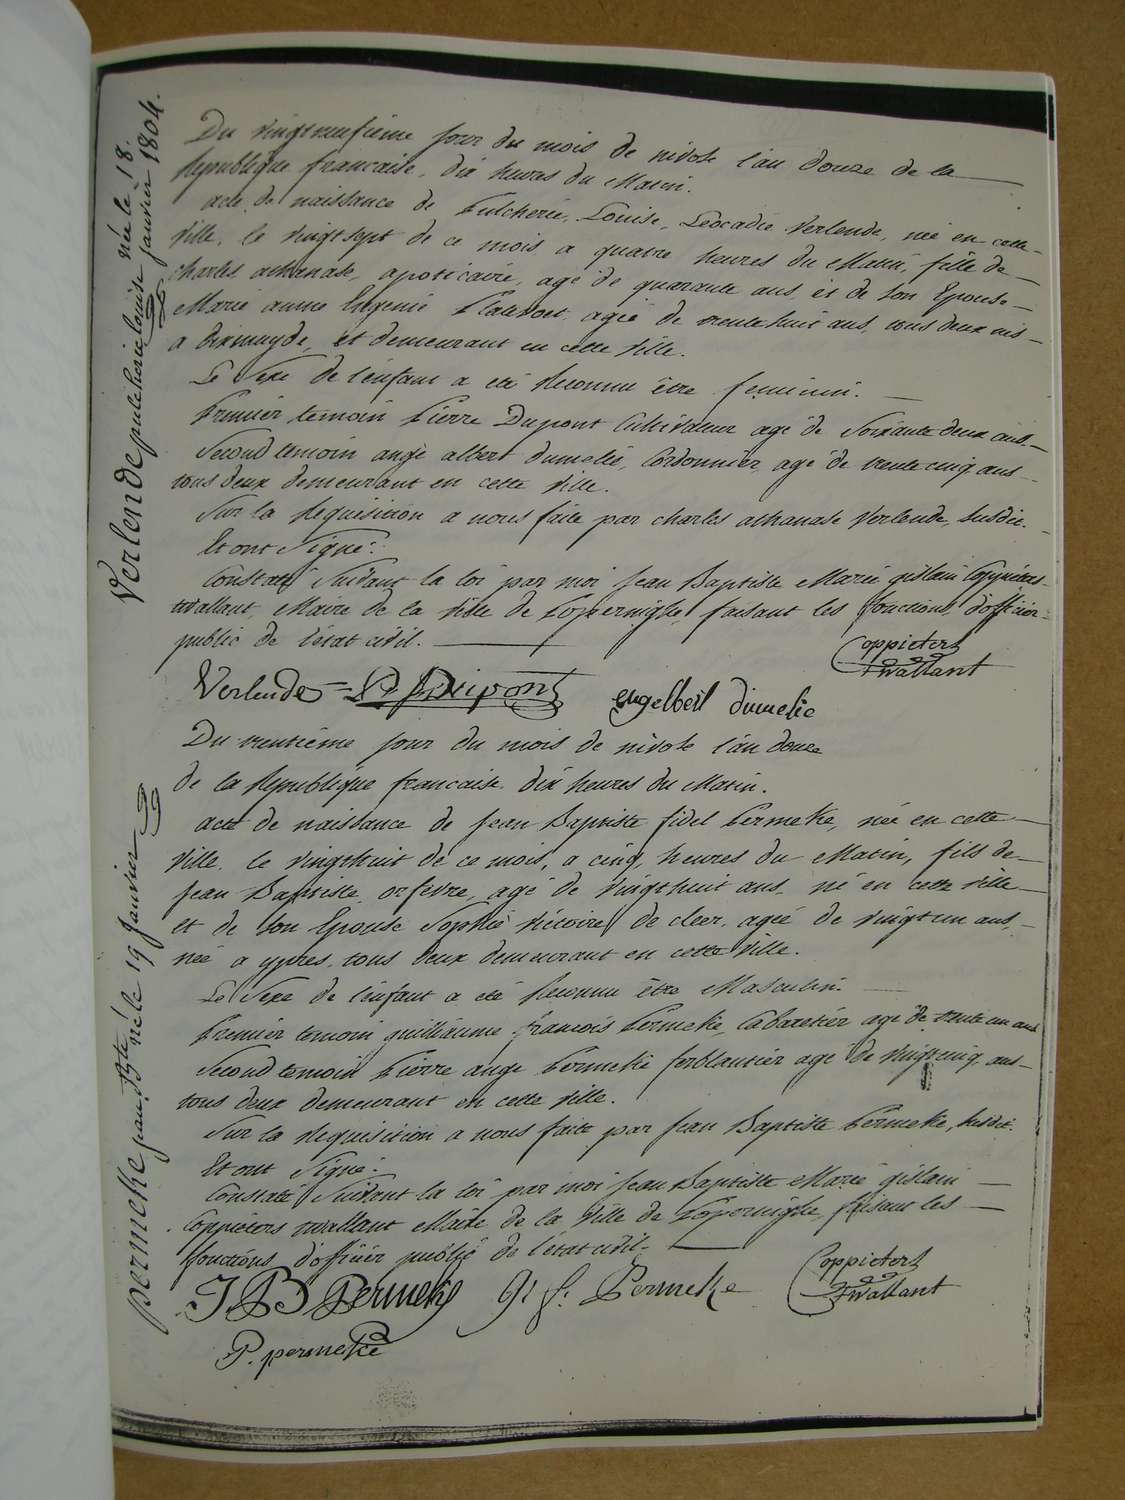 Verlende pulcherie louise née le 18. janvier 1804.
Du vingtneufieme jour du mois de nivose l'an douze de la
Republique francaise, dix heures du Matin.
acte de naissance de Pulcherie, Louise, Léocadie Verlende, née en cette
ville, le vingtsept de ce mois a quatre heures du Matin, fille de
charles athanase, apoticaire, agé de quarante ans, et de son Epouse
Marie anne Eugenie agée de trentehuit ans, tous deux nés
a dixmuyde, et demeurant en cette ville.
Le Sexe de l'enfant a eté Reconnu être feminin.
Premier temoin Pierre Dupont Cultivateur agé de Soixante deux ans
Second temoin ange albert dumelié, Cordonnier, agé de trente cinq ans
tous deux demeurant en cette ville.
Sur la Requisition a nous faite par charles athanase Verlende, susdit.
Et ont Signé.
Constaté Suivant la loi par moi Jean Baptiste Marie gislain Coppieters
wallant, Maire de la ville de Poperinghe, faisant les fonctions d'officier
public de l'état civil.
Coppieters
Twallant
Verlende P Dupont engelbert dumelie
permeke jean Bte né le 19 Janvier
Du trentième jour du mois de nivose l'an douze
de la Republique francaise dix heures du Matin.
acte de naissance de Jean Baptiste fidel Permeke, née en cette
ville, le vingthuit de ce mois, a cinq heures du Matin, fils de
Jean Baptiste, orfevre, agé de vingthuit ans, né en cette ville
et de son Epouse Sophie Victoire de cleer, agée de vingtun ans,
née a ypres, tous deux demeurant en cette ville.
Le Sexe de l'enfant a eté Reconnu être Masculin.
Premier temoin guilliaume francois Permeke, Cabaretier agé de trente un ans
Second temoin Pierre ange Permeke ferblantier agé de vingtcinq ans
tous deux demeurant en cette ville.
Sur la Requisition a nous faite par Jean Baptiste Permeke, susdit.
Et ont Signé.
Constaté Suivant la loi par moi Jean Baptiste Marie gislain
Coppieters wallant Maire de la ville de Poperinghe, faisant les
fonctions d'officier public de l'état civil.
Coppieters
Twallant
J B Permeke g. f. Permeke
P. permeke